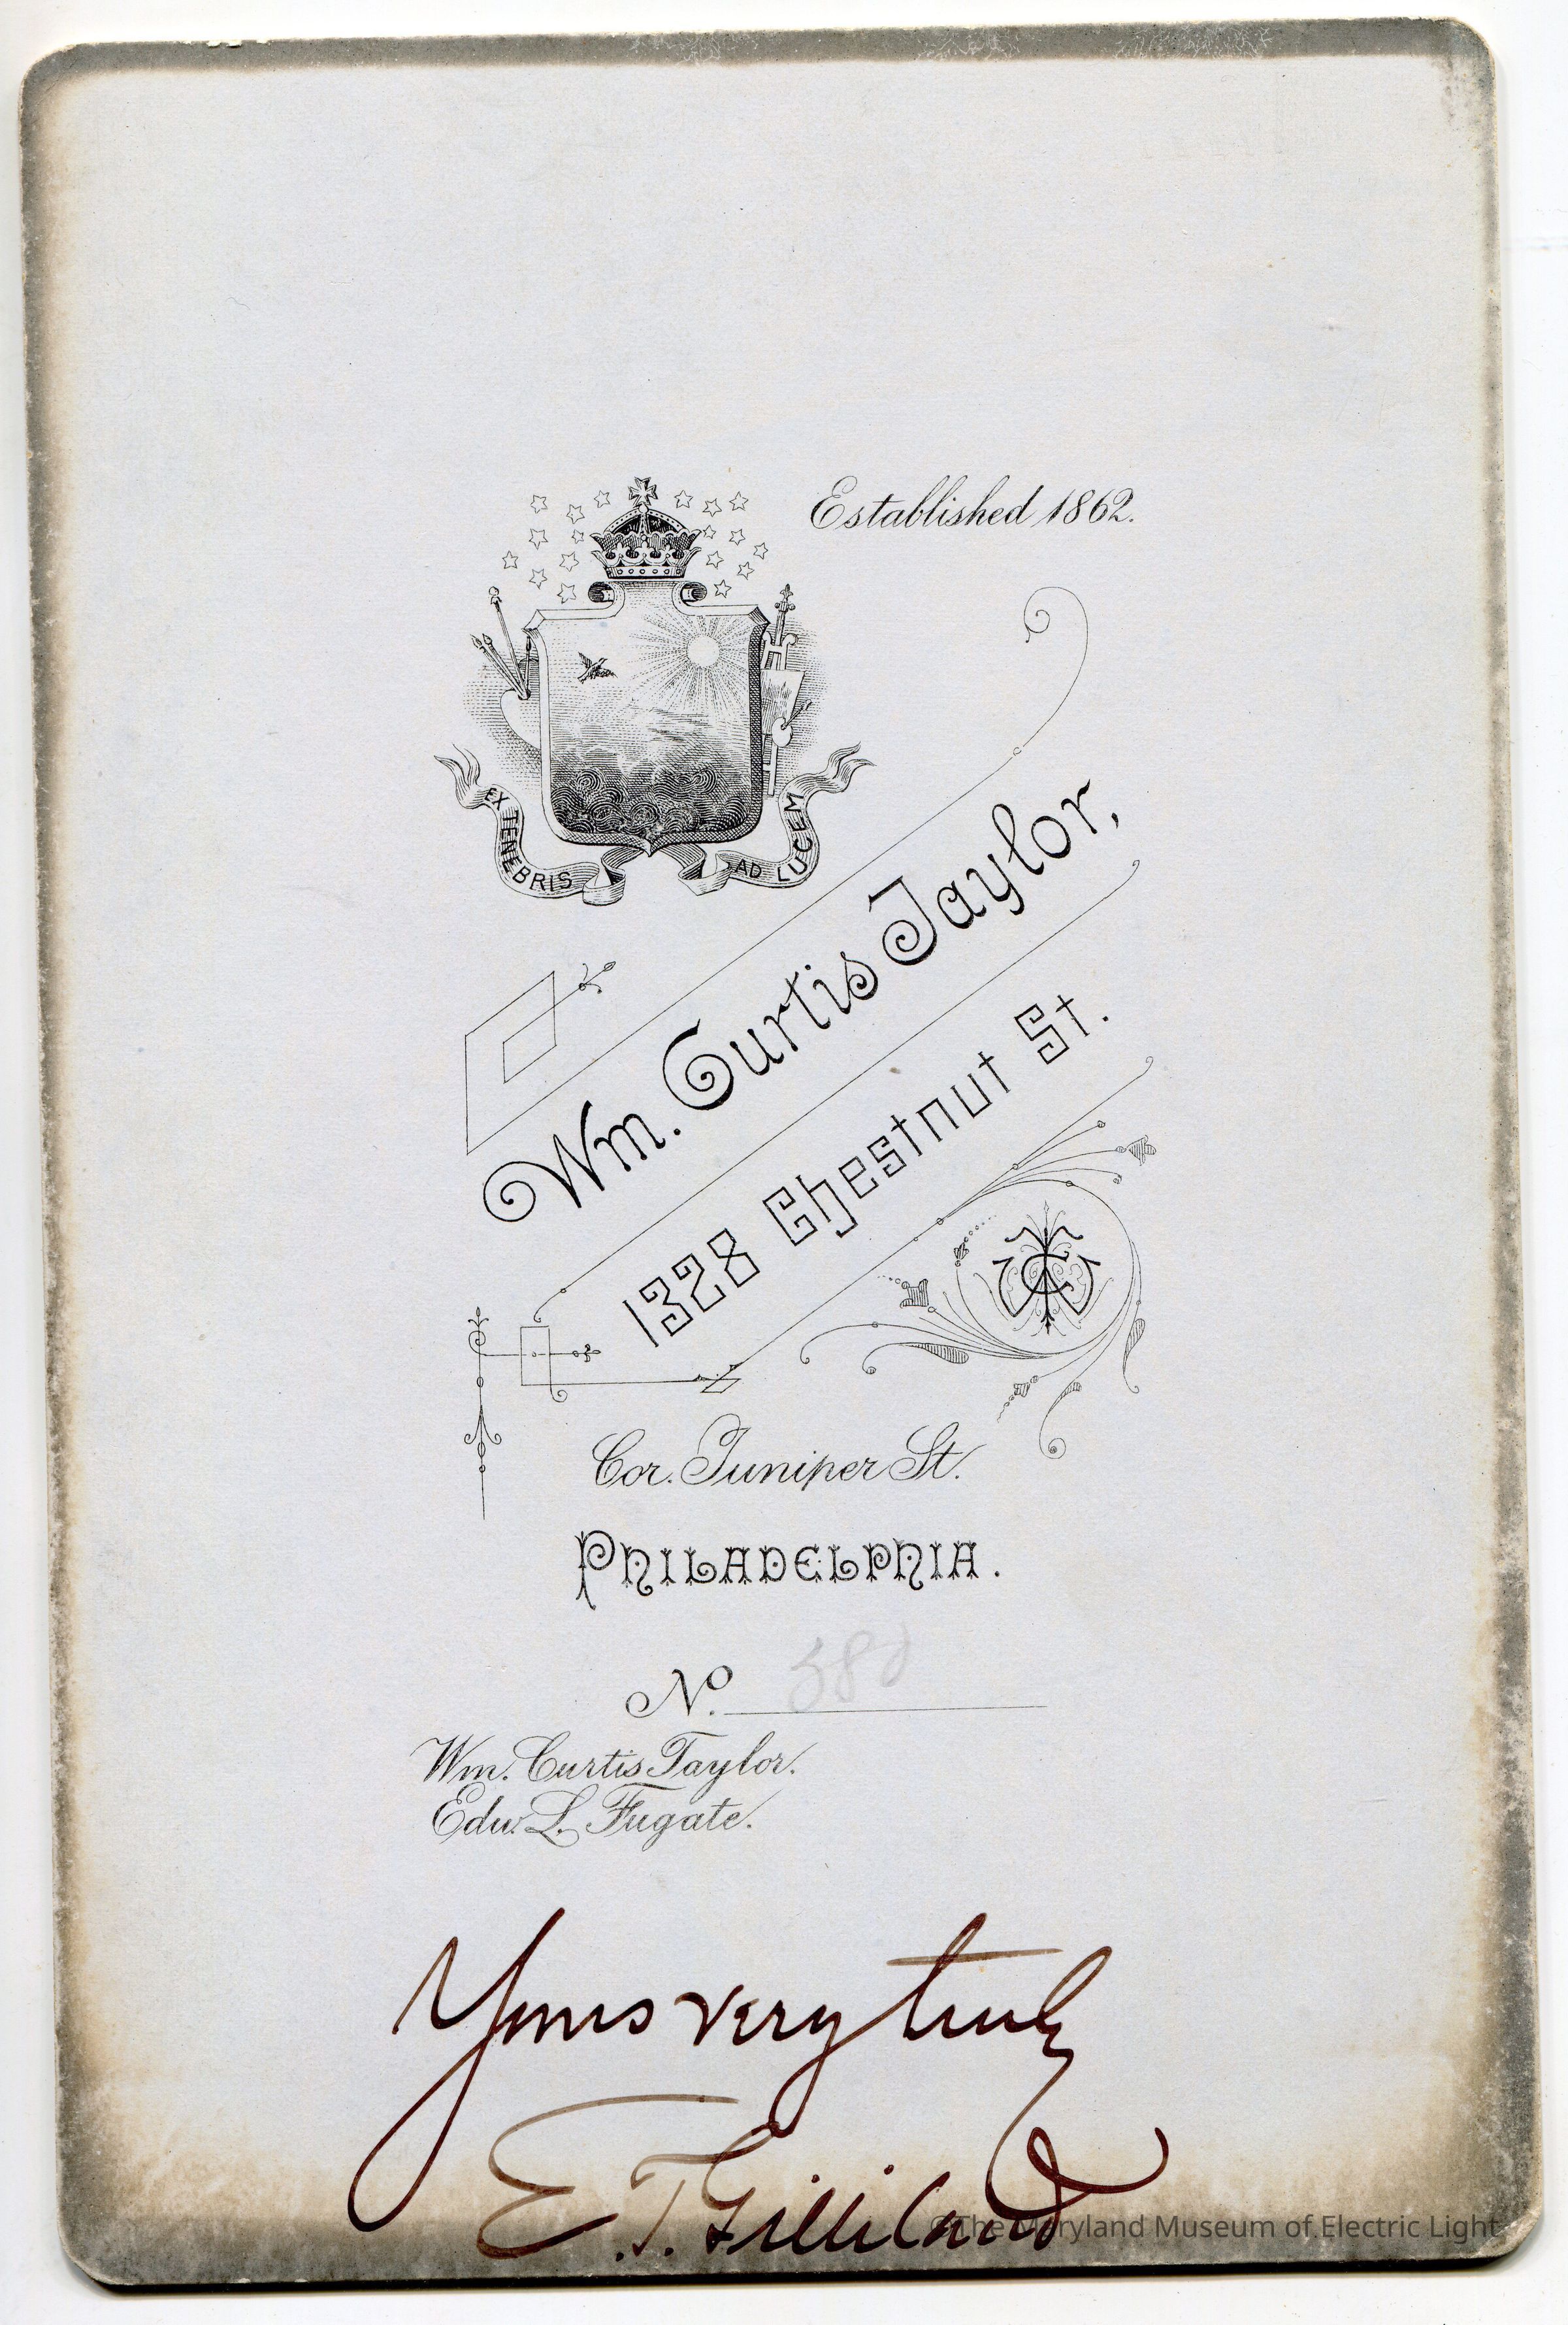 Established 1862.
EX TENEBRIS AD LUCEM
Wm. Curtis Taylor,
1328 Chestnut St.
WCT
Cor. Juniper St.
PHILADELPHIA.
No.
Wm. Curtis Taylor.
Edw. L. Fugate.
Yours very truly
E. T. Gilliland
©The Maryland Museum of Electric Light